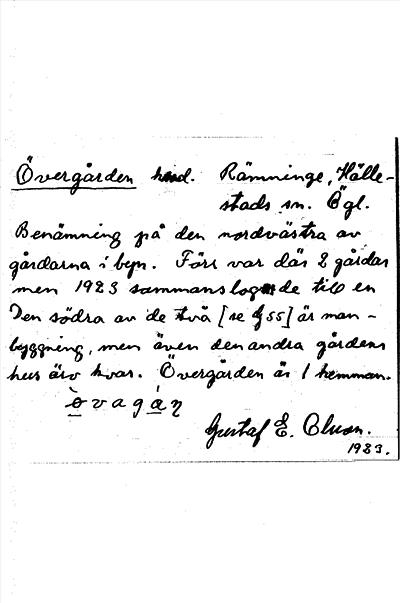 Övergården hmd. Rämninge, Hälle-
stads sn. Ögl.
Benämning på den nordvästra av
gårdarna i byn. Förr var där 2 gårdar
men 1923 sammanslogs de till en
Den södra av de två [se 55] är man-
byggning, men även den andra gårdens
hus äro kvar. Övergården är 1 hemman.
Gustaf E.
1923.